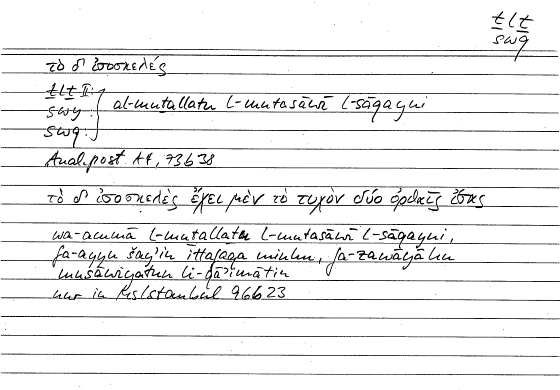 ṯlṯ
swq
τὸ δ' ἰσοσκελές
ṯlṯ II:
swy:
swq:
al-muṯallaṯu l-mutasāwī l-sāqayni
Anal. post. A4, 73b38
τὸ δ' ἰσοσκελὲς ἔχει μὲν τὸ τυχὸν δύο ὀρθαῖς ἴσας
wa-ammā l-muṯallaṯu l-mutasāwī l-sāqayni,
fa-ayyu šay'in ittafaqa minhu, fa-zawāyāhu
musāwiyatun li-qā'imatin
nur in Ms Istanbul 96b23